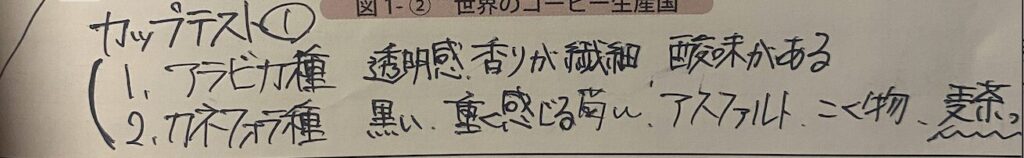 図1-② 世界のコーヒー生産国
カップテスト①
1. アラビカ種 透明感、香りが繊細、酸味がある
2. カネフォラ種 黒い、重く感じる、アスファルト、こく物、麦茶っ